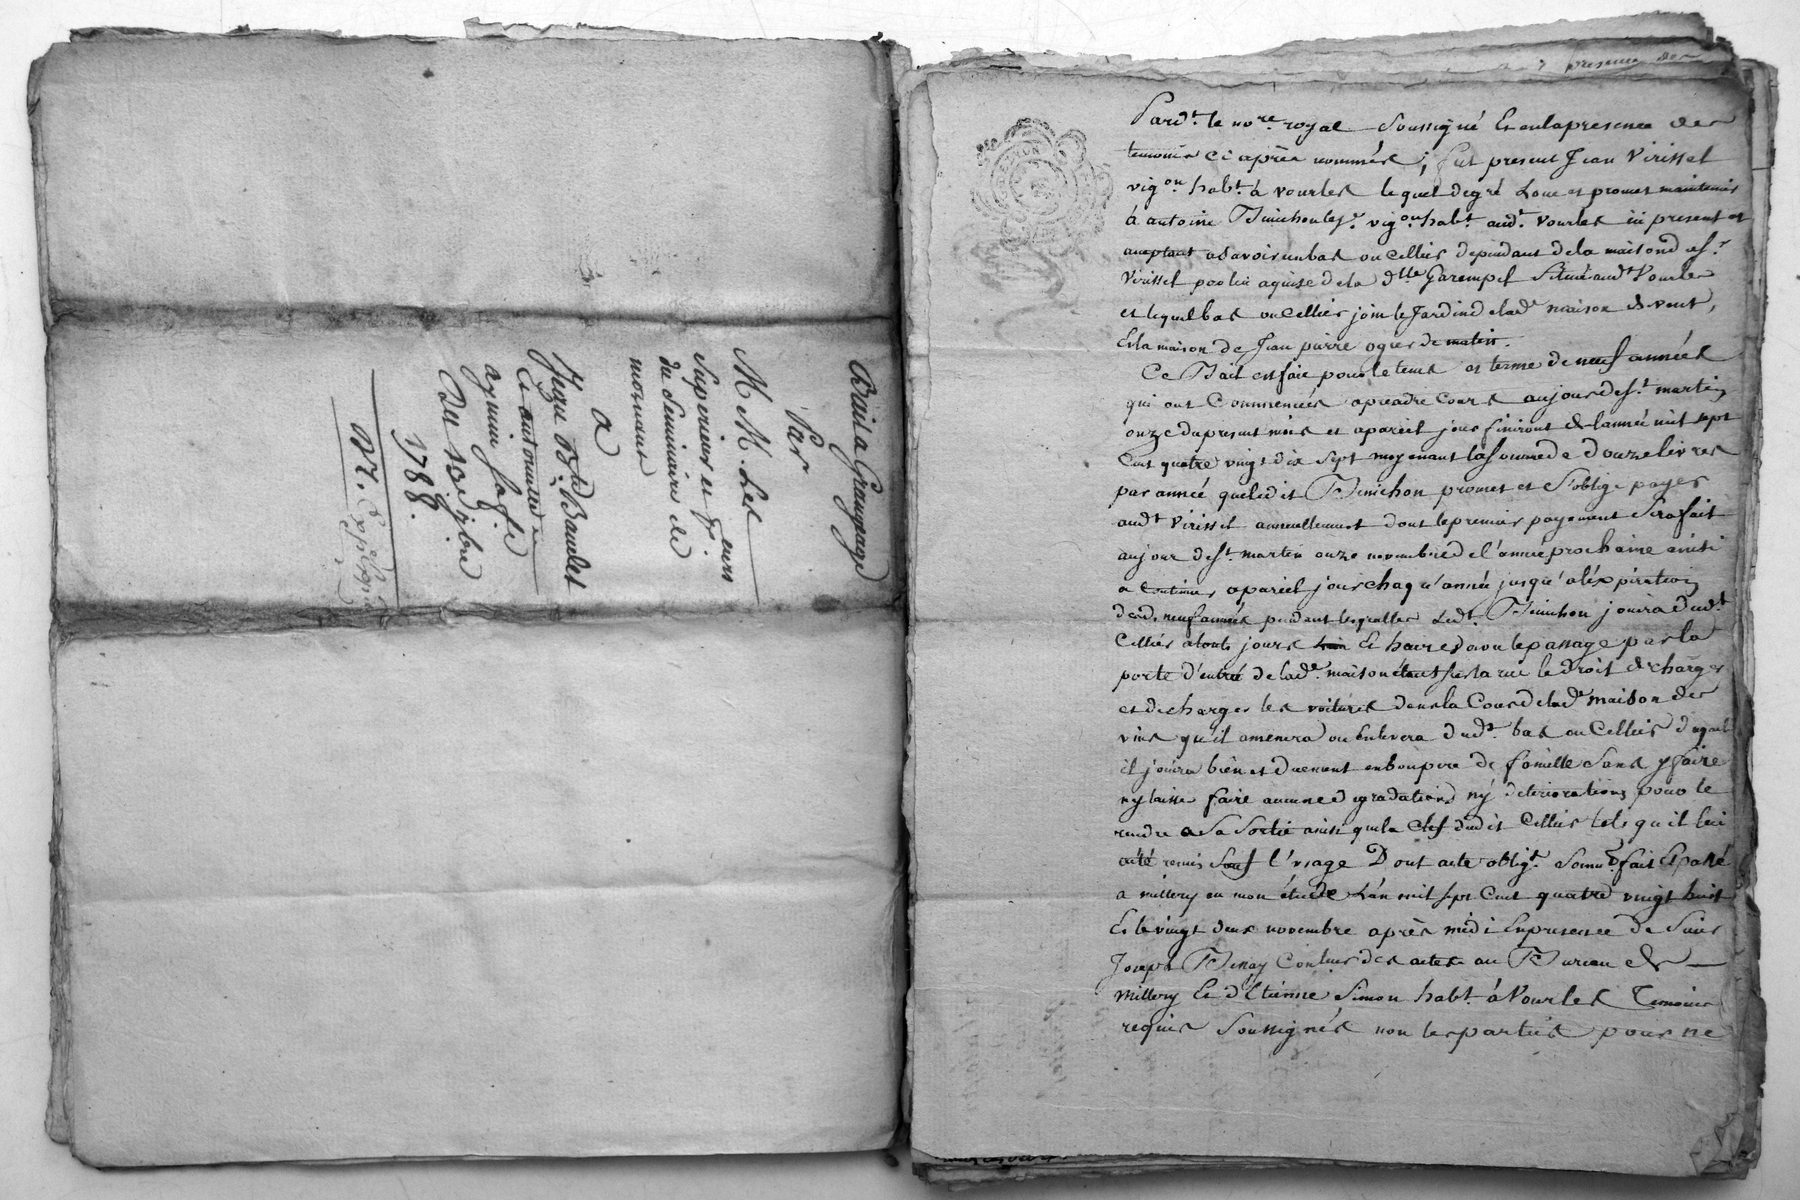 Bail a Grangeage
Par
M M. Les
Superieur et
du Seminaire de
mornant
a
Jean Bte. Baudet
Du 13 Xbre
1788.
Pardt. le nore. royal Soussigné Et en la presence des
temoins ci après nommés; fut present Jean Virissel
vigon habt. à vourles lequel de gré Loue et promet maintenir
à antoine Thinichon vigon habt. audt. Vourles ici present et
aceptant asavoir un bas ou Cellier dependant de la maison
Virissel par lui aquise de la dlle Garempel Situé audt Vourles
et lequel bas ou Cellier joint le Jardin de lade maison de vent,
Et la maison de Jean pierre ogier de matin.
Ce Bail est fait pour le tems et terme de neuf années
qui ont Commencées a prendre Cours au jour de St. martin
onze du present mois et a pareil jour finiront de l'année mil sept
Cent quatre vingt dix sept moyenant la somme de douze livres
par année que ledit Thinichon promet et s'oblige payer
audt Virissel annuellement dont le premier payement Sera fait
au jour de St. martin onze novembre de l'année prochaine ainsi
a Continuer a pareil jour chaqu'année jusqu'a l'expiration
desd. neuf années pendant lesquelles Ledt. Thinichon jouira dudt
Cellier a touts jours Et heures avec le passage par la
porte d'entrée de lade. maison étant sur la rue le droit de charger
et decharger les voitures dans la Cour de lade maison des
vins qu'il amenera ou Enlevera dudt. bas ou Cellier duquel
il jouira bien et duement en bon pere de famille Sans y faire
ny laisser faire aucune degradations ny deteriorations pour le
rendre a Sa Sortie ainsi que la Clef dudit Cellier tels qu'il lui
a été remis Sauf l'usage Dont acte obligt. Soumn. fait Et passé
a millery en mon étude L'an mil sept Cent quatre vingt huit
Et le vingt deux novembre après midi En presence de Sieur
Joseph Controleur des actes au Bureau de
Millery Et d'Etienne Simon habt. à Vourles Temoins
requis Soussignés non les parties pour ne